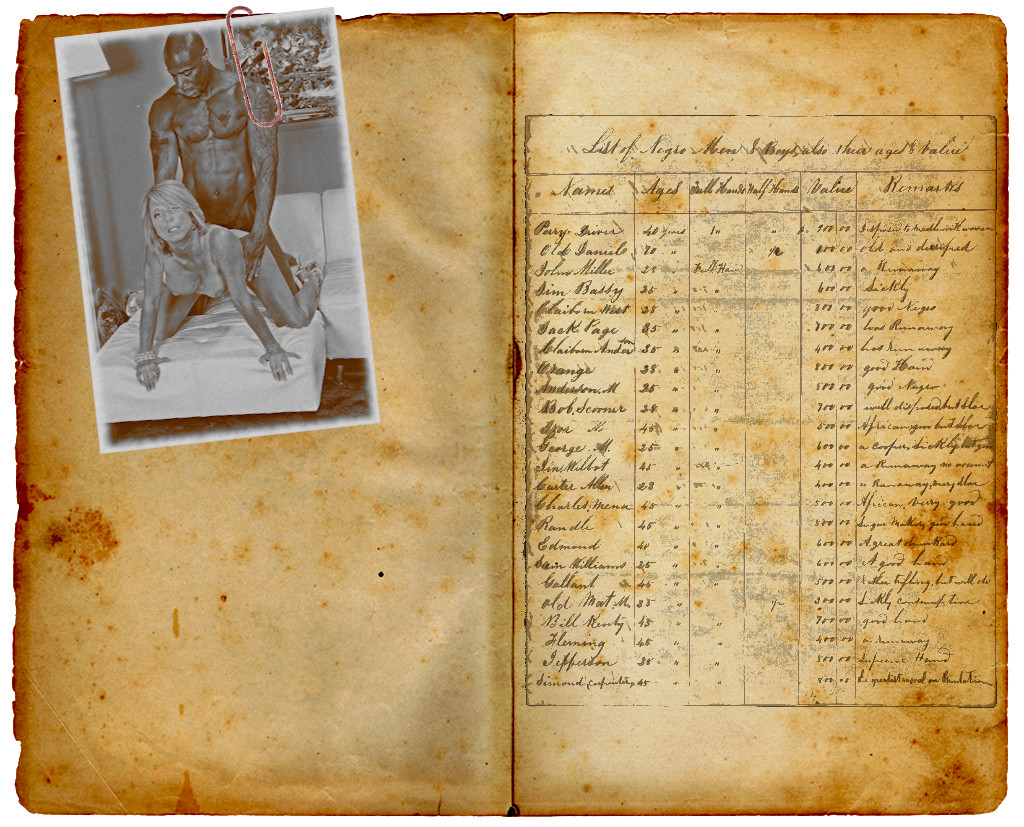 List of Negro Men & Boys, also their ages & Value
Names Ages Full Hands Half Hands Value Remarks
Perry Driver 40 years 1 " 900 00
Old Daniels 70 " 1/2 100 00 old and
John Miller 25 " Full Hand 600 00 a Runaway
Jim Bassy 35 " 600 00 Sickly
Claiborn West 28 " 800 00 good Negro
Jack Page 35 " 700 00 has Runaway
Claiborn Anderson 35 " 400 00 has run away
Orange 28 " 800 00 good Hand
Anderson, M 25 " 800 00 good Negro
Bob, 28 " 700 00 well disposed but slow
45 " 500 00 African, good but slow
George M. 25 " 600 00 a Cooper, Sickly but good
Jim Wilbot 45 " 400 00 a Runaway no account
Carter Allen 28 " 400 00 a Runaway, very slow
Charles, 45 " 500 00 African, very good
Randle 45 " 500 00 Sugar Maker, good hand
Edmond 40 " 600 00 A great drunkard
Sam Williams 25 " 600 00 A good hand
Gallant 45 " 500 00 Rather trifling, but will do
Old Mat, M. 35 " 1/2 200 00 Sickly consumptive
Bill Kenty 45 " 700 00 good hand
Fleming 45 " 400 00 a runaway
Jefferson 28 " 800 00 Superior Hand
Simond, Carpenter 45 " 800 00 on Plantation